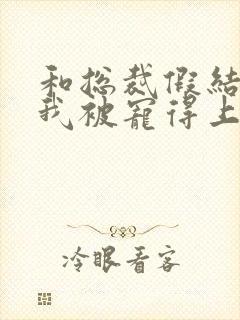 和总裁假结
我被宠得上
冷眼看客